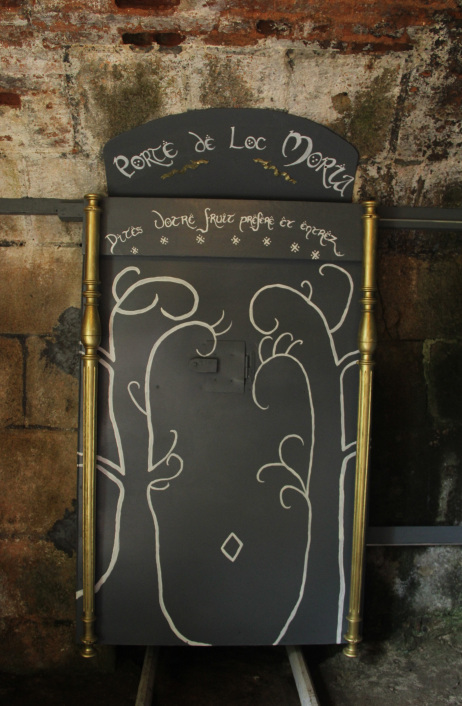 Porte de Loc Moria
Dites votre fruit préféré et entrez